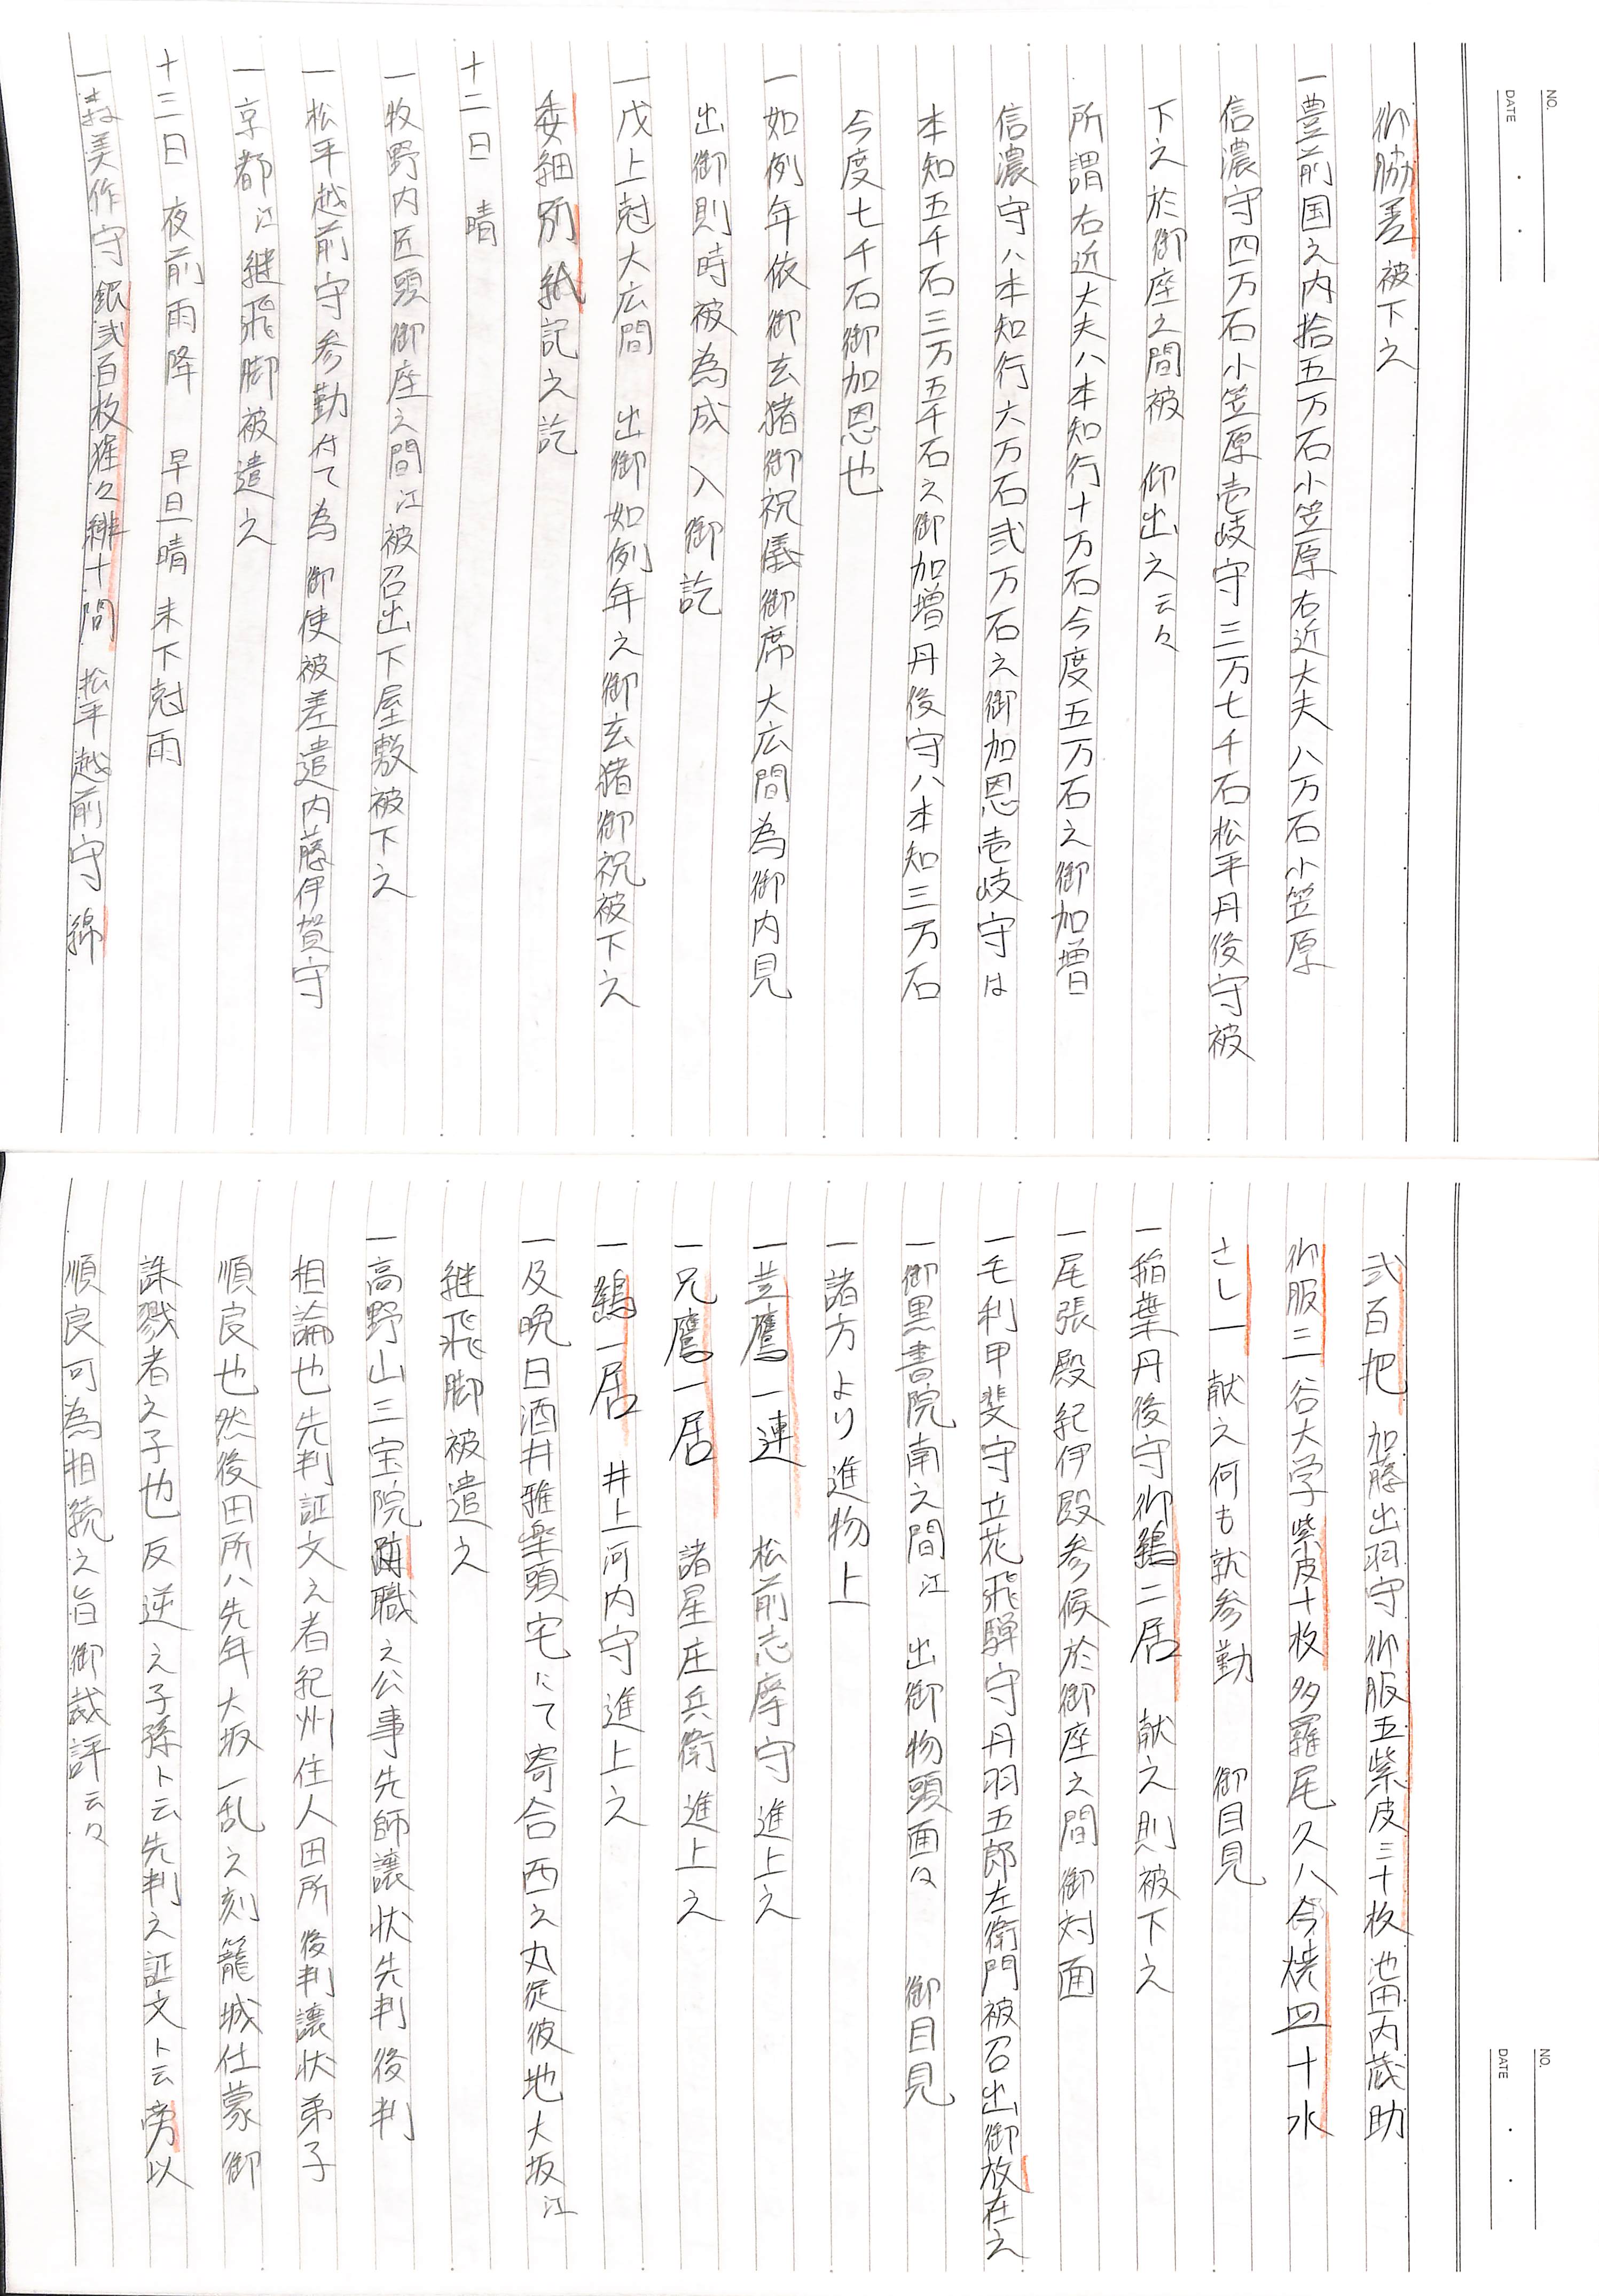 NO.
DATE
御脇差被下之
一豊前国之内拾五万石小笠原右近大夫八万石小笠原
信濃守四万石小笠原壱岐守三万七千石松平丹後守被
下之於御座之間被 仰出之云々
所謂右近大夫ハ本知行十万石今度五万石之御加増
信濃守ハ本知行六万石弐万石之御加恩壱岐守は
本知五千石三万五千石之御加増丹後守ハ本知三万石
今度七千石御加恩也
一如例年依御玄猪御祝儀御席大広間為御内見
出御則時被為成 入御訖
一戊上尅大広間 出御如例年之御玄猪御祝被下之
委細別紙記之訖
十二日 晴
一牧野内匠頭御座之間江被召出下屋敷被下之
一松平越前守参勤付て為 御使被差遣内藤伊賀守
一京都江継飛脚被遣之
十三日 夜前雨降 早旦晴 未下尅雨
一森美作守銀弐百枚猩々緋十間 松平越前守 綿
NO.
DATE
弐百把 加藤出羽守御服五紫皮三十枚池田内蔵助
御服二谷大学紫皮十枚多羅尾久八今焼皿十水
さし一 献之何も就参勤 御目見
一稲葉丹後守御鷂二居 献之則被下之
一尾張殿紀伊殿参候於御座之間御対面
一毛利甲斐守立花飛騨守丹羽五郎左衛門被召出御放在之
一御黒書院南之間江 出御物頭面々 御目見
一諸方より進物上
一芸鷹一連 松前志摩守進上之
一兄鷹一居 諸星庄兵衛進上之
一鷂一居 井上河内守進上之
一及晩日酒井雅楽頭宅にて寄合西之丸従彼地大坂江
継飛脚被遣之
一高野山三宝院跡職之公事先師譲状先判後判
相論也先判証文之者紀州住人田所後判譲状弟子
順良也然後田所ハ先年大坂一乱之刻籠城仕蒙御
誅戮者之子也反逆之子孫ト云先判之証文ト云旁以
順良可為相続之旨御裁評云々